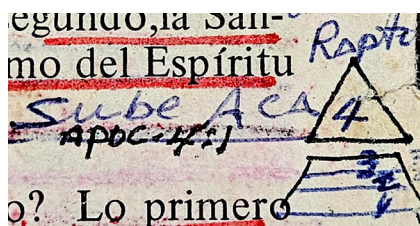 segundo, la San-
Rapto
mo del Espíritu
Sube Aca
4
APOC-4:1
3
2
1
o? Lo primero